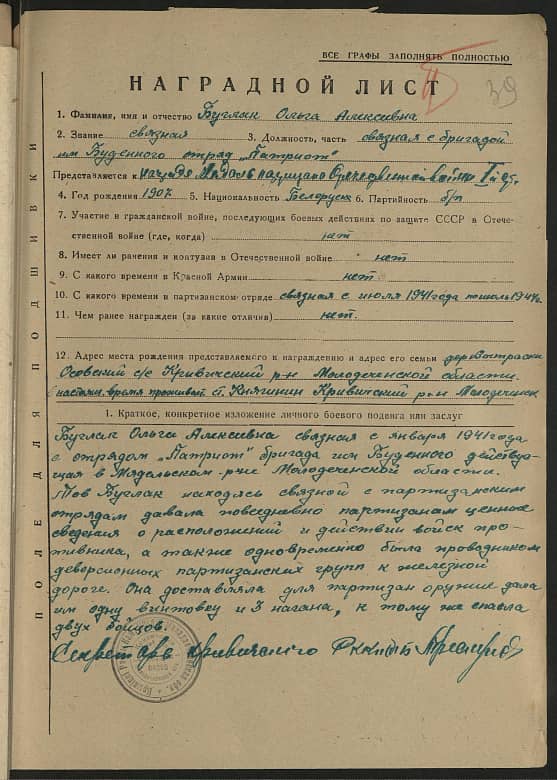 ВСЕ ГРАФЫ ЗАПОЛНЯТЬ ПОЛНОСТЬЮ
39
НАГРАДНОЙ ЛИСТ
1. Фамилия, имя и отчество Буглак Ольга Алексивна
2. Звание связная 3. Должность, часть связная с бригадой
им Буденного отряд „Патриот"
Представляется к награде Медаль партизана Отечественной войны II й ст.
4. Год рождения 1907 5. Национальность Белоруск 6. Партийность б/п
7. Участие в гражданской войне, последующих боевых действиях по защите СССР в Отече-
ственной войне (где, когда) нет
8. Имеет ли ранения и контузия в Отечественной войне нет
9. С какого времени в Красной Армии нет
10. С какого времени в партизанском отряде связная с июля 1941 года по июль 1944г.
11. Чем ранее награжден (за какие отличия) нет.
12. Адрес места рождения представляемого к награждению и адрес его семьи дер
Осовский с/с Кривический р-н Молодеченской области.
настоящ. время проживает ст. Княгинин Кривитский р-н Молодечинск
1. Краткое, конкретное изложение личного боевого подвига или заслуг
Буглак Ольга Алексивна связная с января 1941 года
с отрядом „Патриот" бригада им Буденного действую-
щая в Мядельском р-не Молодеченской области.
Тов Буглак находясь связной с партизанским
отрядам давала повседневно партизанам ценные
сведения о расположений и действии войск про-
тивника, а также одновременно была проводником
деверсионных партизанских групп к железной
дороге. Она доставляла для партизан оружие дала
им одну винтовку и 3 нагана, к тому же спасла
двух бойцов.
Секретарь Кривичского РК КП(б)Б
ПОЛЕ ДЛЯ ПОДШИВКИ